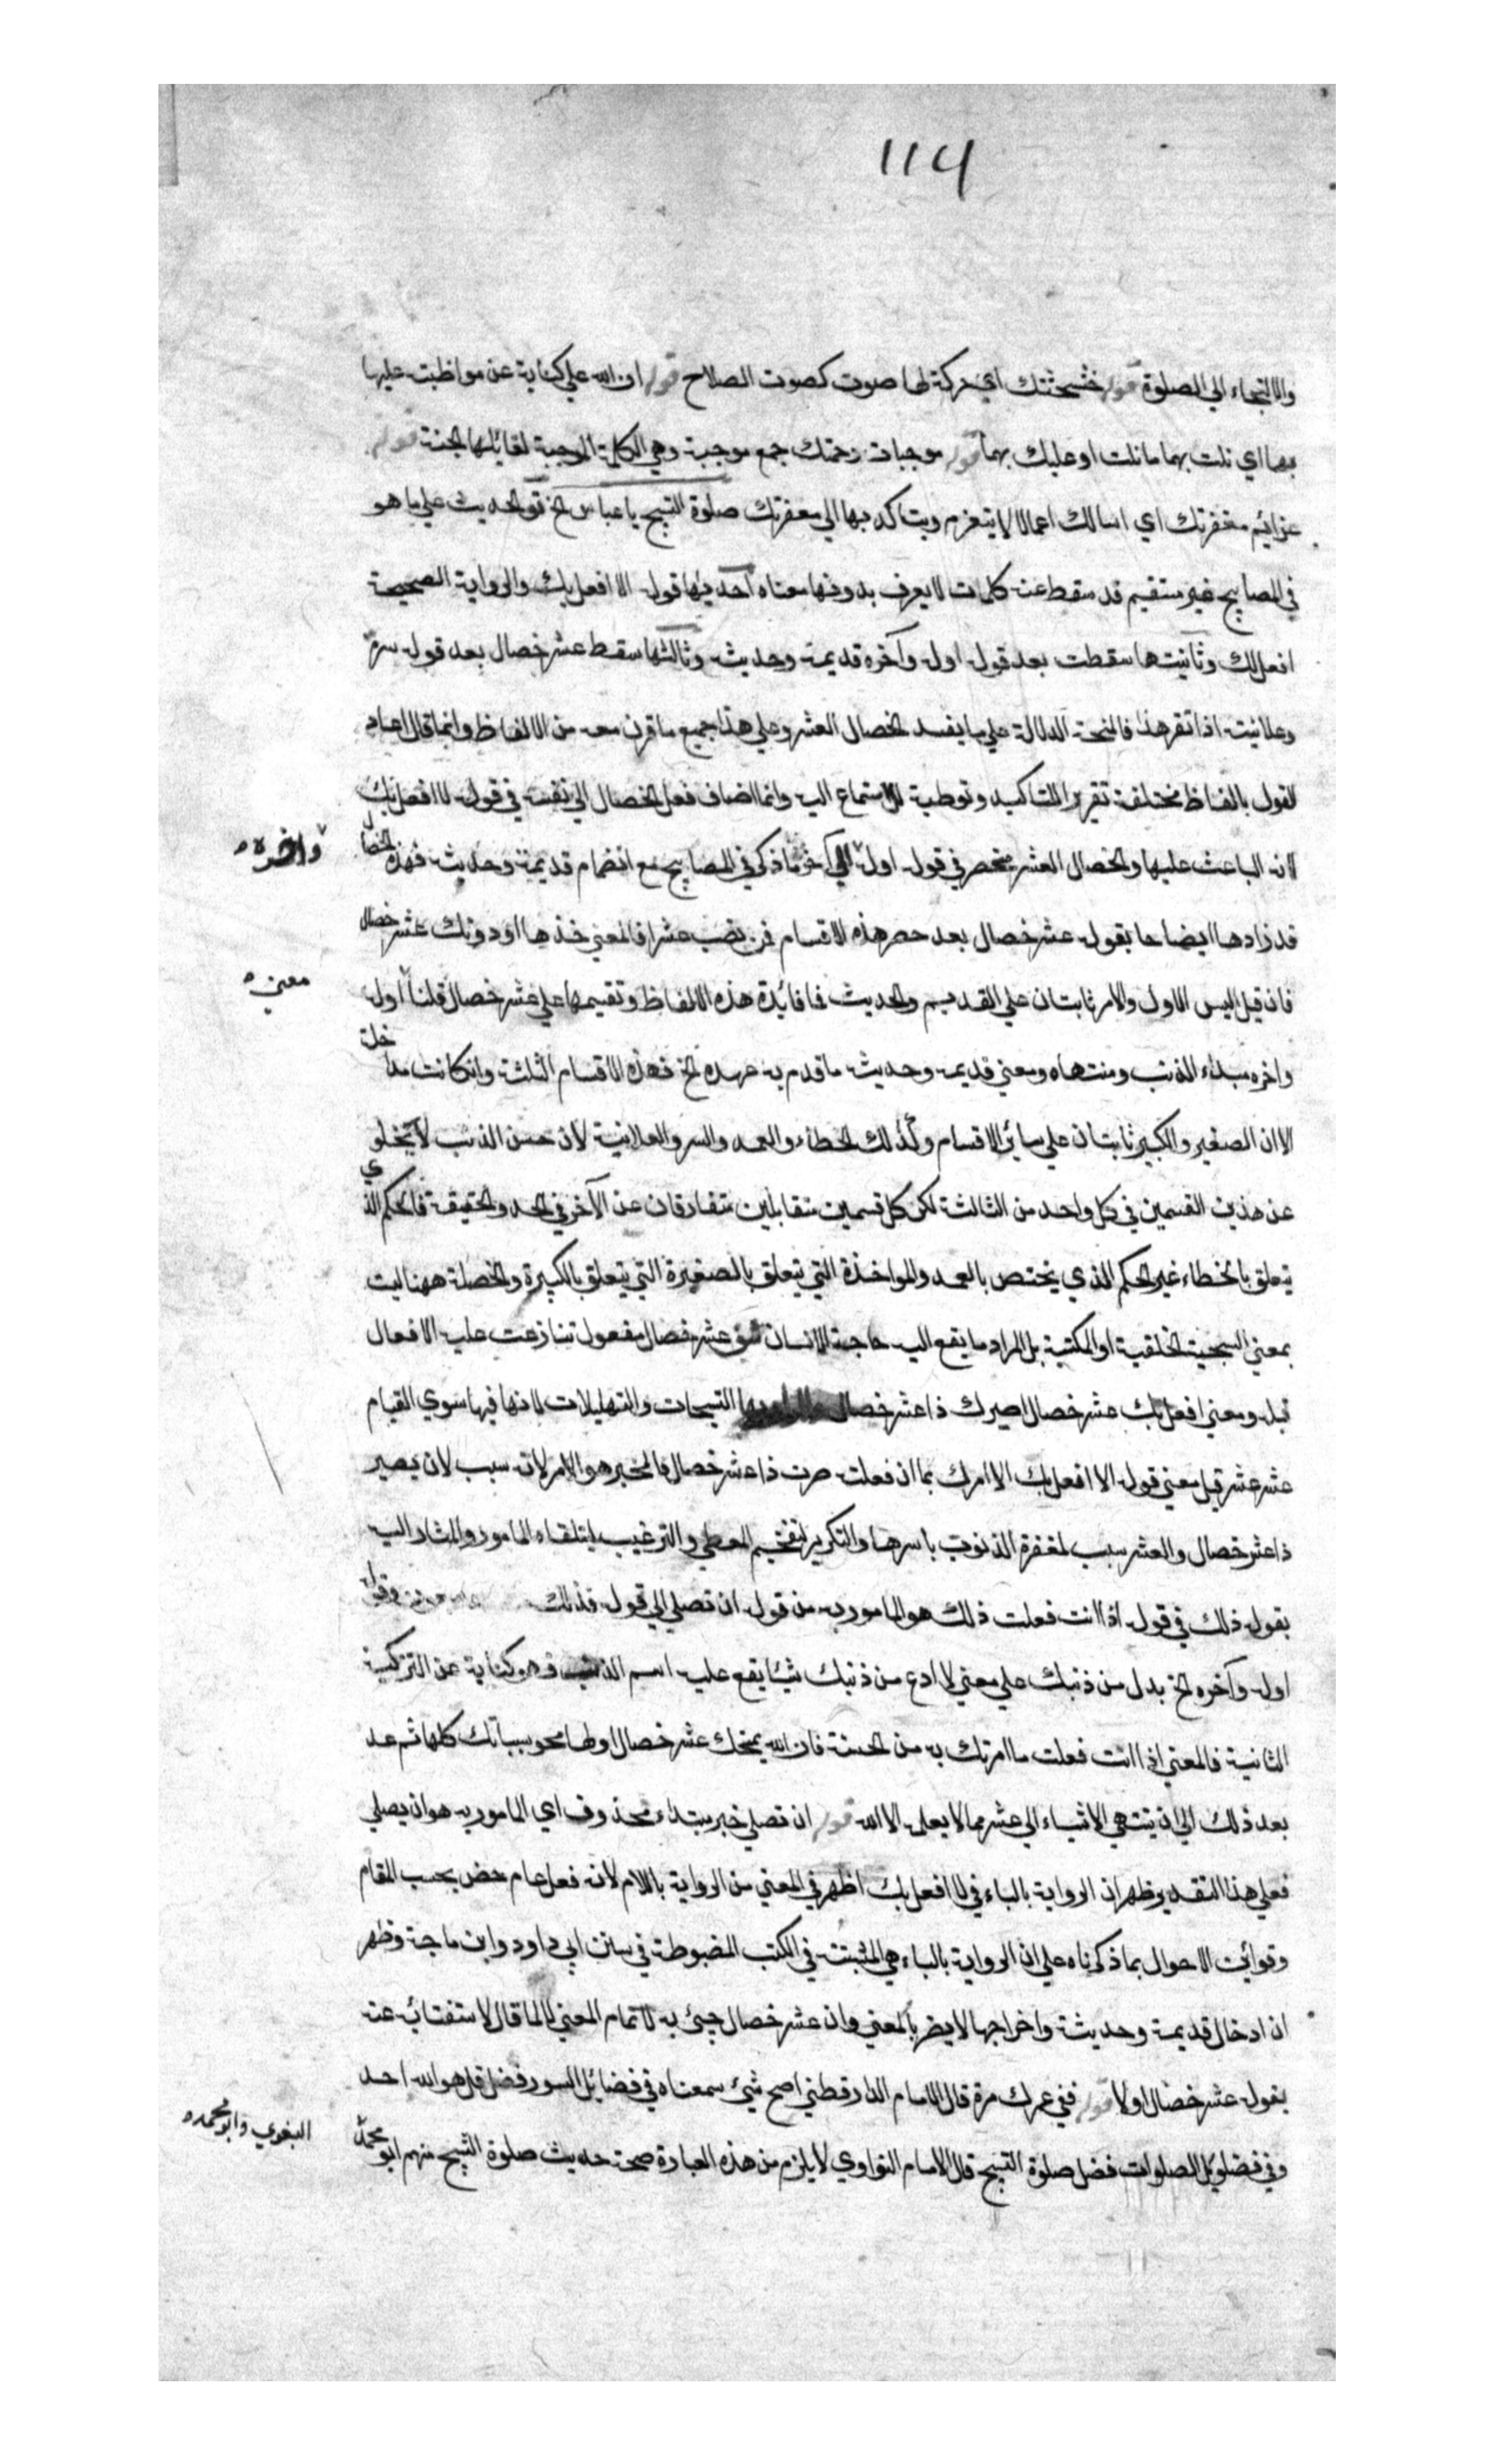 ١١٤
والالتجاء الي الصلوة قوله خشخشتك اي حركة لها صوت كصوت الصلاح قوله ان لله علي كناية عن مواظبته عليها
بهما اي نلت بهما ما نلت او عليك بهما قوله موجبات رحمتك جمع موجبة وهي الكلمة الموجبة لقائلها الجنة قوله
عزائم مغفرتك اي اسالك اعمالا لا يتعزم ويتاكد بها الي مغفرتك صلوة التسبيح يا عباس الخ قو الحديث علي ما هو
في المصابيح غير مستقيم قد سقط عنه كلمات لا يعرف بدونها معناه احديها قوله الا افعل بك والرواية الصحيحة
افعل لك وثانيتها سقطت بعد قوله اوله وآخره قديمه وحديثه وثالثها سقط عشر خصال بعد قوله سره
وعلانيته اذا تقر هذا فالمنحة الدلالة علي ما يفسد الخصال العشر وعلي هذا جميع ما قرن معه من الالفاظ وانما قال اعاد
القول بالفاظ مختلفة تقريرا للتاكيد وتوطية للاستماع اليه وانما اضاف فعل الخصال الي نفسه في قوله لا افعل بك
لانه الباعث عليها والخصال العشر منحصر في قوله اوله الي آخر ما ذكر في المصابيح مع انضمام قديمه وحديثه فهذه الخصال
واخره
قد زادها ايضاحا بقوله عشر خصال بعد حصر هذه الاقسام فمن نصب عشرا فالمعني خذها او دونك عشر خصال
فان قيل اليس الاول والامر ثابتان علي القديم والحديث فما فائدة هذه الالفاظ وتقسيمها علي عشر خصال قلنا اوله
معني
واخره مبداء الذنب ومنتهاه ومعني قديمه وحديثه ما قدم به عهده الخ فهذه الاقسام الثلثة وان كانت متداخلة
الا ان الصغير والكبير ثابتان علي سائر الاقسام وكذلك الخطاء والعمد والسر والعلانية لان حسن الذنب لا يخلو
عن هذين القسمين في كل واحد من الثالثة لكن كل قسمين متقابلين متفارقان عن الآخر في الحد والحقيقة فالحكم الذي
يتعلق بالخطاء غير الحكم الذي يختص بالعمد والمواخذة التي يتعلق بالصغيرة التي يتعلق بالكبيرة والخصلة ههنا ليت
بمعني السجية الخلقية او المكتبة بل المراد ما يقع اليه حاجة الانسان عشر خصال مفعول تنازعت عليه الافعال
قبله ومعني افعل بك عشر خصال اصيرك ذا عشر خصال والمراد بها التسبيحات والتهليلات لانها فيها سوي القيام
عشر عشر قيل معني قوله الا افعل بك الا امرك بما ان فعلته صرت ذا عشر خصال فالمخبر هو الامر لانه سبب لان يصير
ذا عشر خصال والعشر سبب لمغفرة الذنوب باسرها والتكرير لتفخيم المعطي والترغيب ليتلقاه المامور والمشار اليه
بقوله ذلك في قوله اذا انت فعلت ذلك هو المامور به من قوله ان تصلي الي قوله فذلك وقوله
اوله وآخره الخ بدل من ذنبك علي معني لا ادع من ذنبك شيئا يقع عليه اسم الذنب فهو كناية عن التزكية
الثانية فالمعني اذا انت فعلت ما امرتك به من الحسنة فان الله يمنحك عشر خصال اولها محو سيئاتك كلها ثم عد
بعد ذلك الي ان ينتهي الاشياء الي عشر مما لا يعلمه الا الله قوله ان تصلي خبر مبتداء محذوف اي المامور به هو ان يصلي
فعلي هذا التقدير ظهر ان الرواية بالباء في لا افعل بك اظهر في المعني من الرواية باللام لانه فعل عام خص بحسب المقام
وقوائن الاحوال بما ذكرناه علي ان الرواية بالباء هي المثبتة في الكتب المضبوطة في سنن ابي داود وابن ماجة وظهر
ان ادخال قديمه وحديثه واخراجها لا يضر بالمعني وان عشر خصال جيئ به لاتمام المعني لا لما قال لاستفتائه عنه
بقوله عشر خصال اولا قوله ففي عمرك مرة قال الامام الدارقطني اصح شيئ سمعناه في فضايل السور فضل قل هو الله احد
وفي فضايل الصلوات فضل صلوة التسبيح قال الامام النواوي لا يلزم من هذه العبارة صحة حديث صلوة التسبيح منهم ابو محمد
البغوي وابو محمد